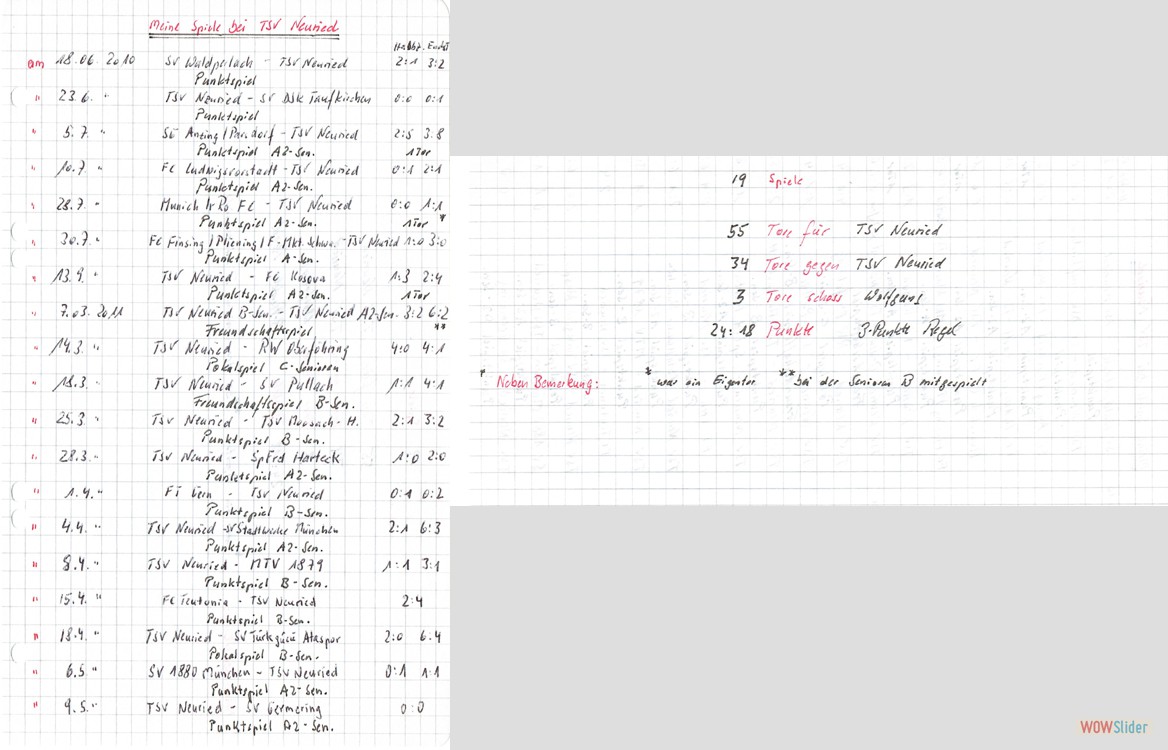 Meine Spiele bei TSV Neuried
Halbz. Endst
am 18.06. 2010 SV Waldperlach - TSV Neuried 2:1 3:2
Punktspiel
" 23.6. " TSV Neuried - SV DJK Taufkirchen 0:0 0:1
Punktspiel
" 5.7. " SC Anzing/Parsdorf - TSV Neuried 2:5 3:8
Punktspiel A2-Sen. 1 Tor
" 10.7. " FC Ludwigsvorstadt - TSV Neuried 0:1 2:1
Punktspiel A2-Sen.
" 28.7. " Munich Ir Ro FC - TSV Neuried 0:0 1:1
Punktspiel A2-Sen. 1 Tor *
" 30.7. " FC Finsing/Pliening/F.-Mkt. Schwa. - TSV Neuried 1:0 3:0
Punktspiel A-Sen.
" 13.9. " TSV Neuried - FC Kosova 1:3 2:4
Punktspiel A2-Sen. 1 Tor
" 7.03. 2011 TSV Neuried B-Sen. - TSV Neuried A2-Sen. 3:2 6:2
Freundschaftsspiel **
" 14.3. " TSV Neuried - RW Oberföhring 4:0 4:1
Pokalspiel C-Senioren
" 18.3. " TSV Neuried - SV Pullach 1:1 4:1
Freundschaftsspiel B-Sen.
" 25.3. " TSV Neuried - TSV Moosach-H. 2:1 3:2
Punktspiel B-Sen.
" 28.3. " TSV Neuried - SpFrd Harteck 1:0 2:0
Punktspiel A2-Sen.
" 1.4. " FT Gern - TSV Neuried 0:1 0:2
Punktspiel B-Sen.
" 4.4. " TSV Neuried - SV Stadtwerke München 2:1 6:3
Punktspiel A2-Sen.
" 8.4. " TSV Neuried - MTV 1879 1:1 3:1
Punktspiel B-Sen.
" 15.4. " FC Teutonia - TSV Neuried 2:4
Punktspiel B-Sen.
" 18.4. " TSV Neuried - SV Türkgücü Ataspor 2:0 6:4
Pokalspiel B-Sen.
" 6.5. " SV 1880 München - TSV Neuried 0:1 1:1
Punktspiel A2-Sen.
" 9.5. " TSV Neuried - SV Germering 0:0
Punktspiel A2-Sen.
19 Spiele
55 Tore für TSV Neuried
34 Tore gegen TSV Neuried
3 Tore schoss Wolfgang
24:18 Punkte 3-Punkte Regel
* Neben Bemerkung: * war ein Eigentor ** bei der Senioren B mitgespielt
WOWSlider